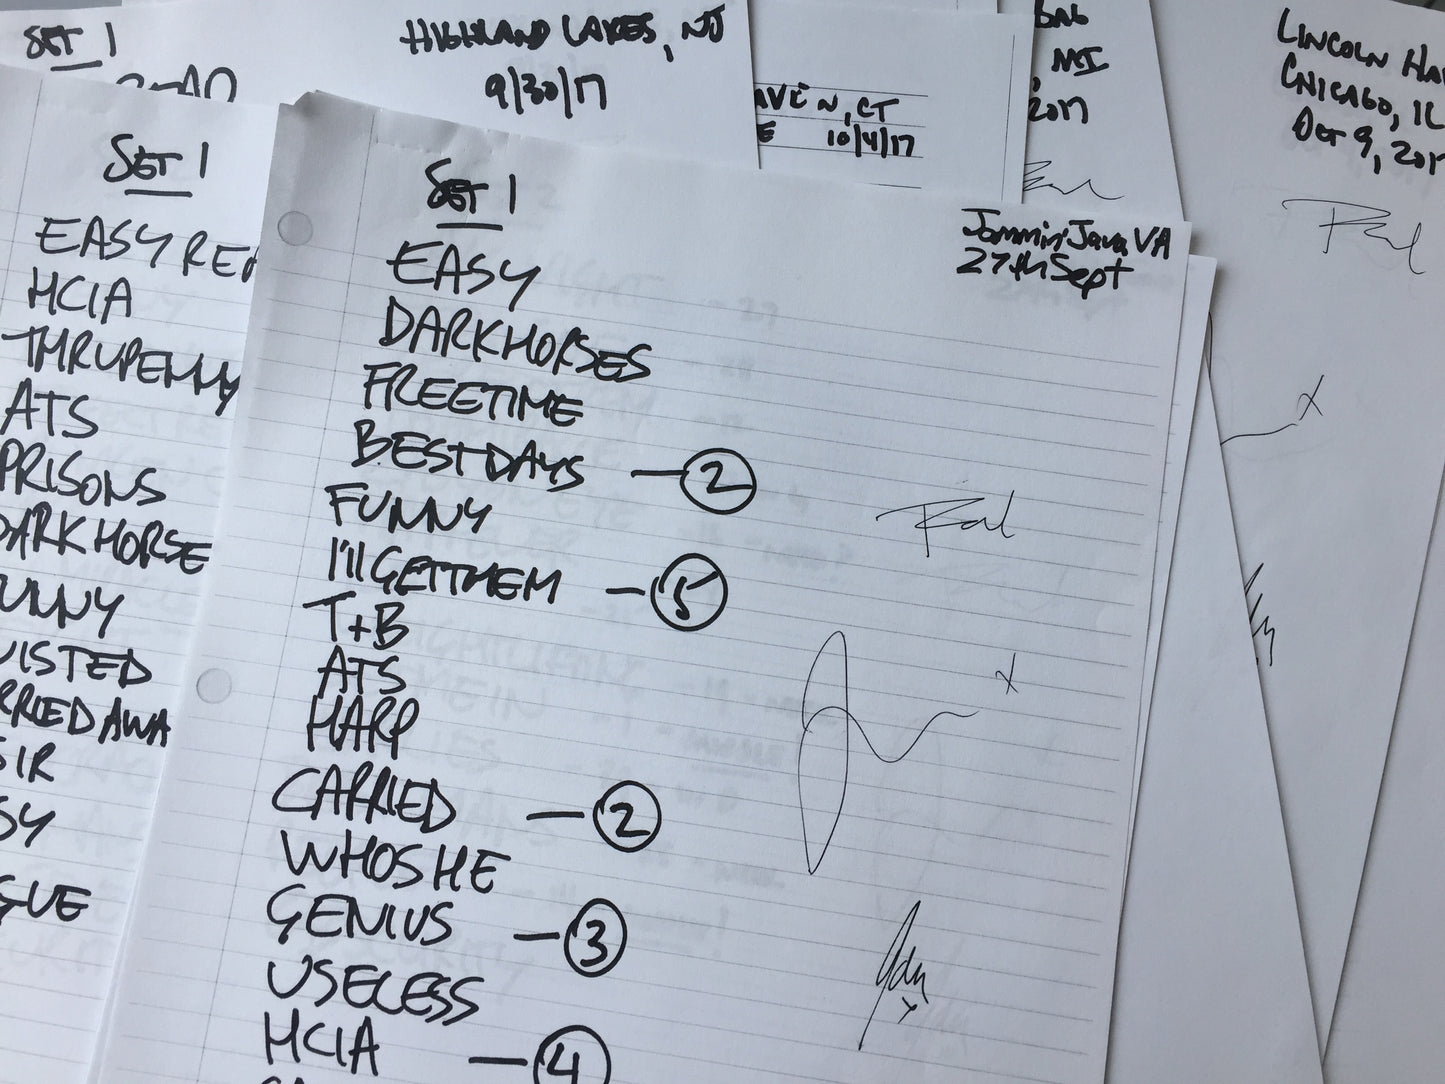 SET 1
HIGHLAND LAKES, NJ
9/30/17
AVEN, CT
10/4/17
, MI
2017
LINCOLN HA
CHICAGO, IL
OCT 9, 201
SET 1
EASY REA
HCIA
THRUPENNY
ATS
PRISONS
DARK HORSE
UNNY
WISTED
RRIED AWA
SIR
SY
GUE
SET 1
Jammin Java VA
27th Sept
EASY
DARKHORSES
FREETIME
BESTDAYS — 2
FUNNY
I'll GETTHEM — 5
T+B
ATS
HARP
CARRIED — 2
WHOSHE
GENIUS — 3
USELESS
HCIA — 4